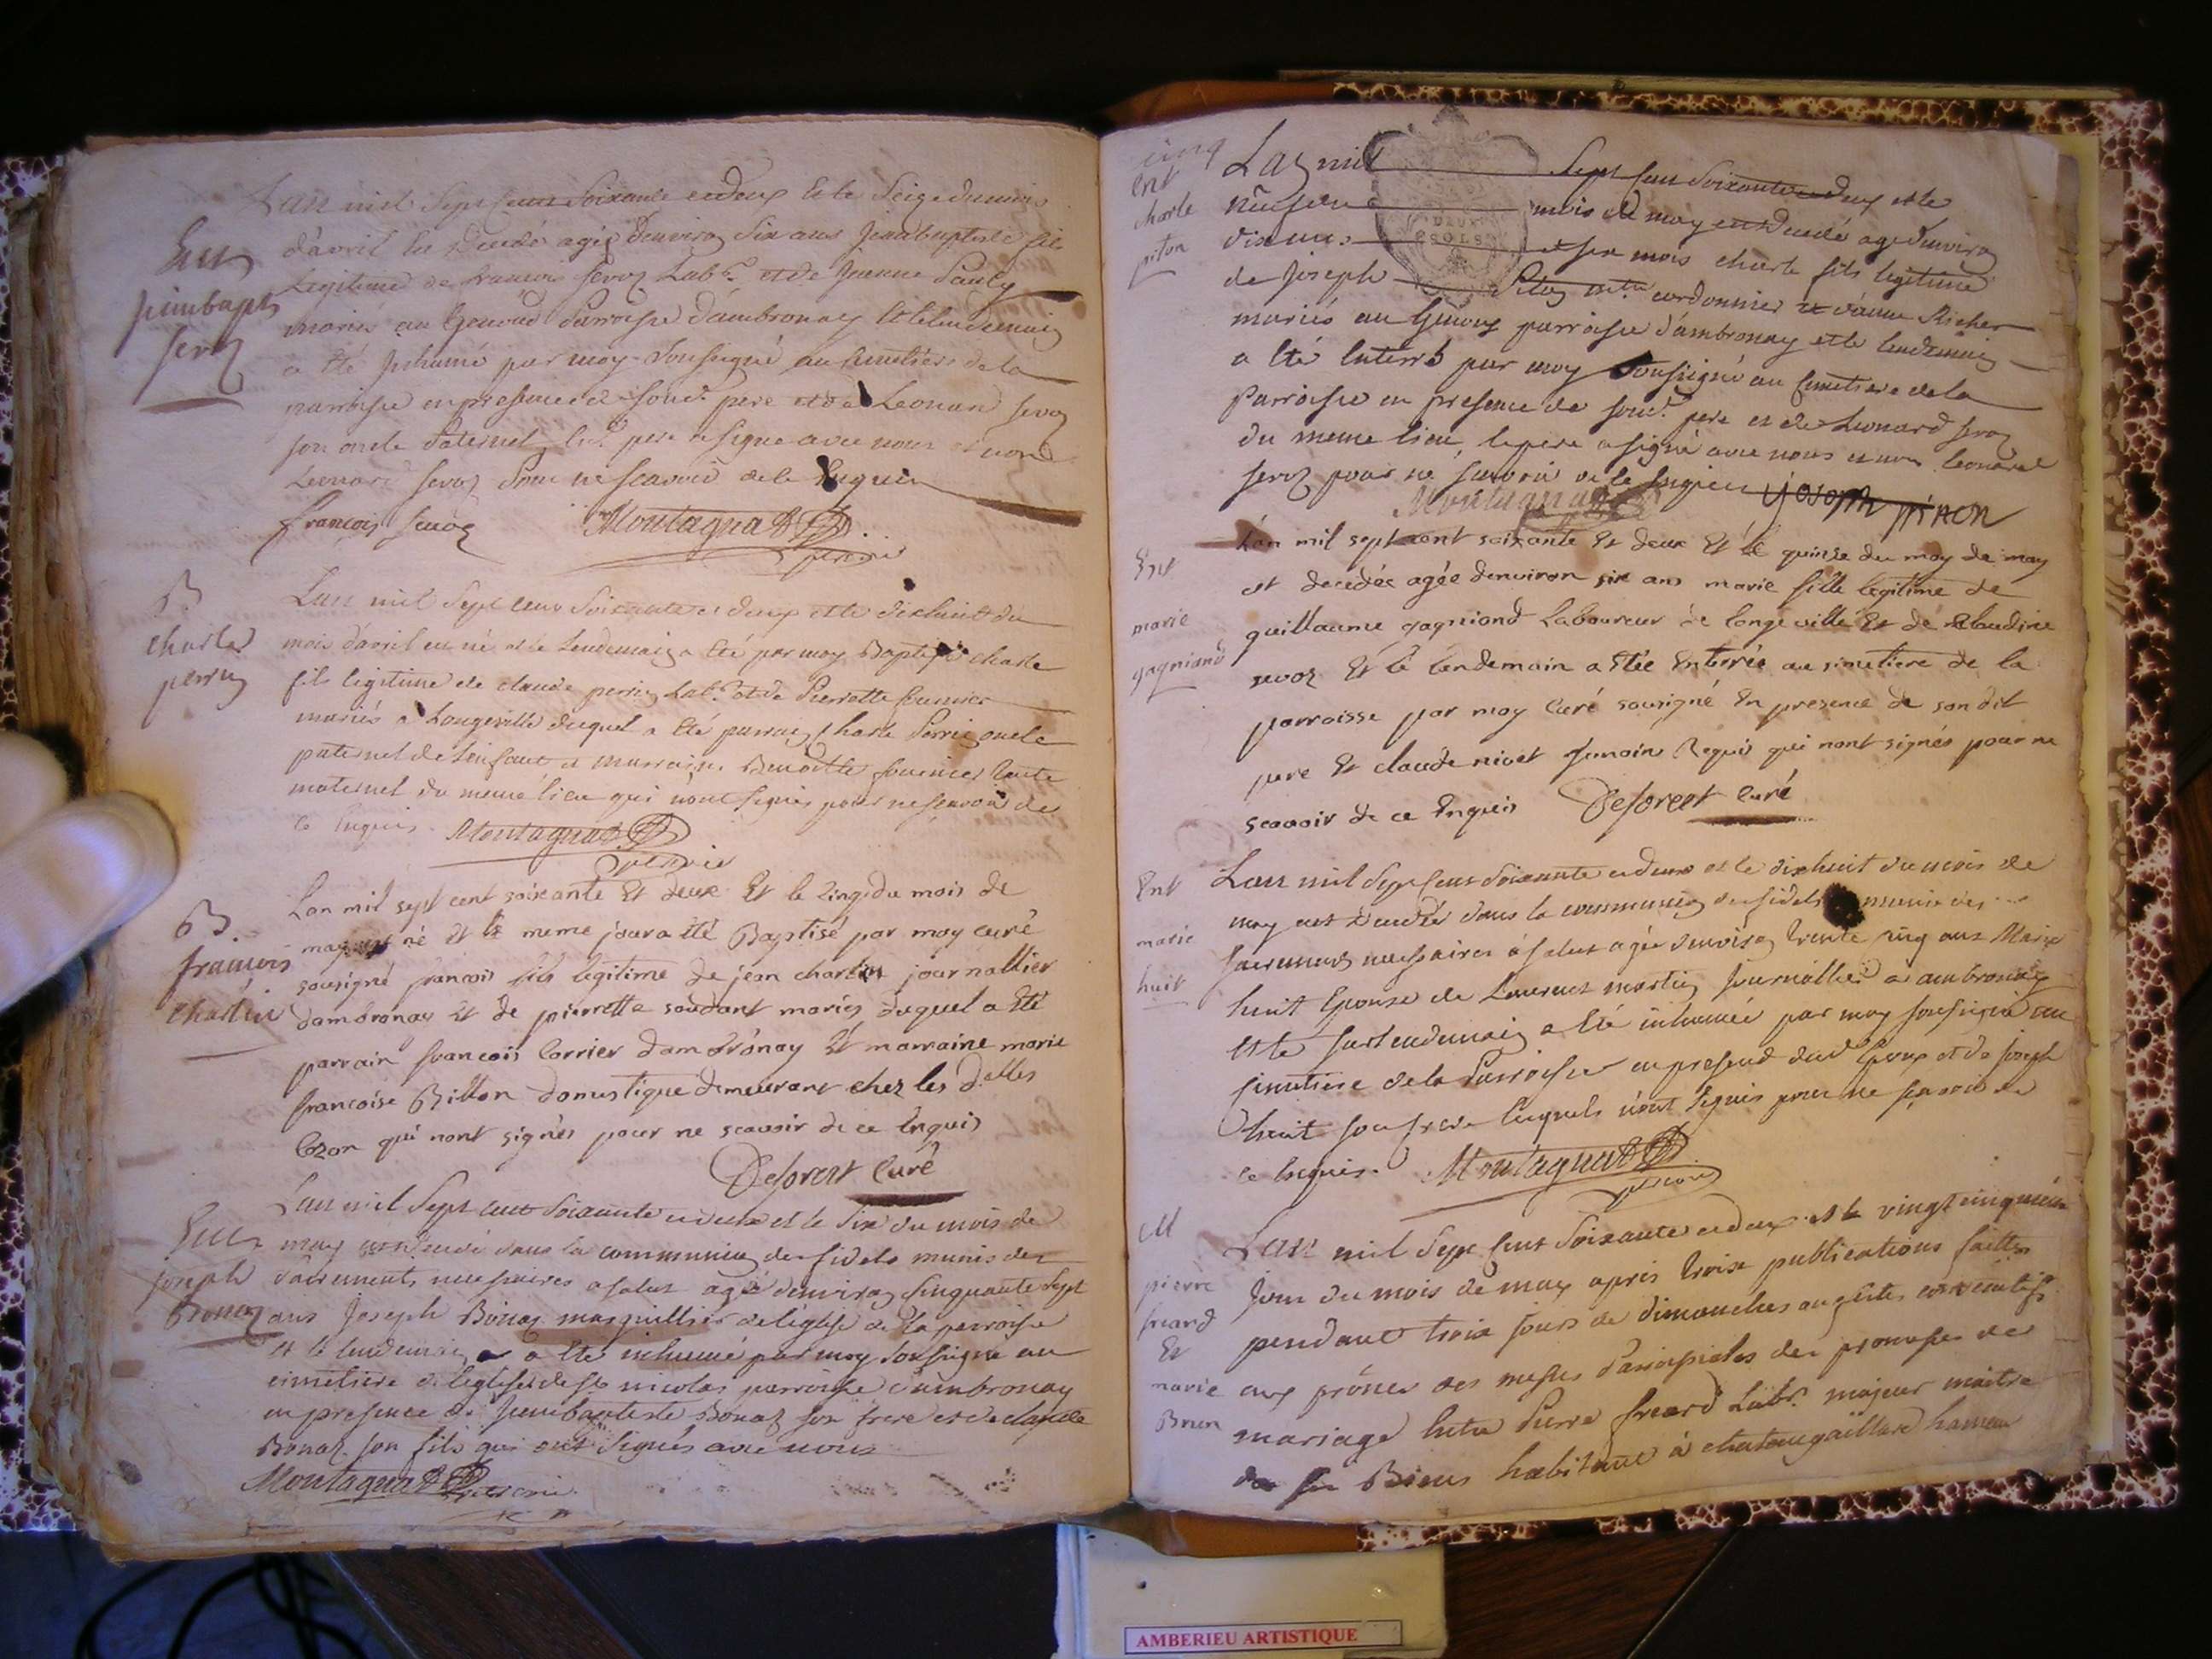 Ent
jeanbapte
Sevoz
L'an mil Sept Cent Soixante et deux et le Seize du mois
d'avril est decedé agé d'environ six ans Jeanbaptiste fils
Legitime de francois Sevoz Labr. et de Jeanne Pauly
mariés au Genoud Parroisse d'ambronay et le lendemain
a été Inhumé par moy soussigné au cimetiere de la
parroisse en presence de sond. pere et de Leonard Sevoz
son oncle Paternel led. pere a signé avec nous et non
Leonard Sevoz Pour ne scavoir de ce Enquis
francois Sevoz Montagnat
vicaire
B
charles
perrin
L'an mil Sept cent Soixante et deux et le dixhuit du
mois d'avril est né et le lendemain a été par moy Baptisé charle
fils legitime de claude perrin Labr. et de Pierrette fournier
mariés a Longeville duquel a été parrain Charle Perrin oncle
paternel de l'enfant et marraine Benoitte fournier tante
maternel du meme lieu qui n'ont signés pour ne scavoir de
ce Enquis. Montagnat
vicaire
B.
francois
chartin
Lan mil sept cent soixante Et deux Et le cinq du mois de
may est né Et le meme jour a été Baptisé par moy curé
sousigné francois fils legitime de jean chartin journallier
dambronay Et de pierrette soudant mariés duquel a Eté
parrain francois Carrier dambronay Et marraine marie
francoise Billon domestique demeurant chez les dlles
Cozon qui nont signés pour ne scavoir de ce Enquis
Deforest Curé
Ent
joseph
Bonaz
L'an mil Sept cent Soixante et deux et le Six du mois de
may est decedé dans la communion des fidels munis des
sacrements necessaires a salut agé d'environ Cinquante Sept
ans Joseph Bonaz marguillier de l'église de la parroisse
et le lendemain a été inhumé par moy soussigné au
cimetiere de l'église de St nicolas parroisse d'ambronay
en presence de Jeanbaptiste Bonaz son frere et de claude
Bonaz son fils qui ont signés avec nous
Montagnat vicaire
cinq
Ent
charle
piton
L'an mil Sept Cent Soixante et deux et le
neufieme mois de may est decedé agé d'environ
dix ans et six mois charle fils legitime
de Joseph Piton mtre cordonnier et d'anne Richer
mariés au Genoux parroisse d'ambronay et le lendemain
a été Enterré par moy soussigné au Cimetiere de la
Parroisse en presence de sond. pere et de Leonard Sevoz
du meme lieu, le pere a signé avec nous et non Leonard
Sevoz pour ne scavoir de ce Enquis yoseph piton
Montagnat
Ent
marie
gagniand
L'an mil sept cent soixante Et deux Et le quinse du moy de may
est decedée agée denviron six ans marie fille legitime de
guillaume gagniand Laboureur de longeville Et de claudine
sevoz Et le lendemain a Etée Enterrée au simetiere de la
parroisse par moy Curé sousigné En presence de son dit
pere Et claude nivet temoins Requis qui nont signés pour ne
scavoir de ce Enquis Deforest Curé
Ent
marie
huit
L'an mil Sept Cent Soixante et deux et le dixhuit du mois de
may est decedée dans la communion des fidels munie des
sacrements necessaires à salut agée d'environ trente cinq ans Marie
huit Epouse de Laurent martin Journallier a ambronay
et le surlendemain a été inhumée par moy soussigné au
cimetiere de la Parroisse en presence dud. Epoux et de joseph
huit son frere lesquels n'ont signés pour ne scavoir de
ce Enquis. Montagnat
vicaire
M
pierre
freard
Et
marie
Brun
L'an mil Sept Cent Soixante et deux et le vingt cinquieme
Jour du mois de may apres trois publications faittes
pendant trois jours de dimanches ou fêtes consecutifs
aux prônes des messes Paroissiales des promesses de
mariage Entre Pierre freard Labr. majeur maitre
de ses Biens habitant à chateaugaillard hameau
AMBERIEU ARTISTIQUE